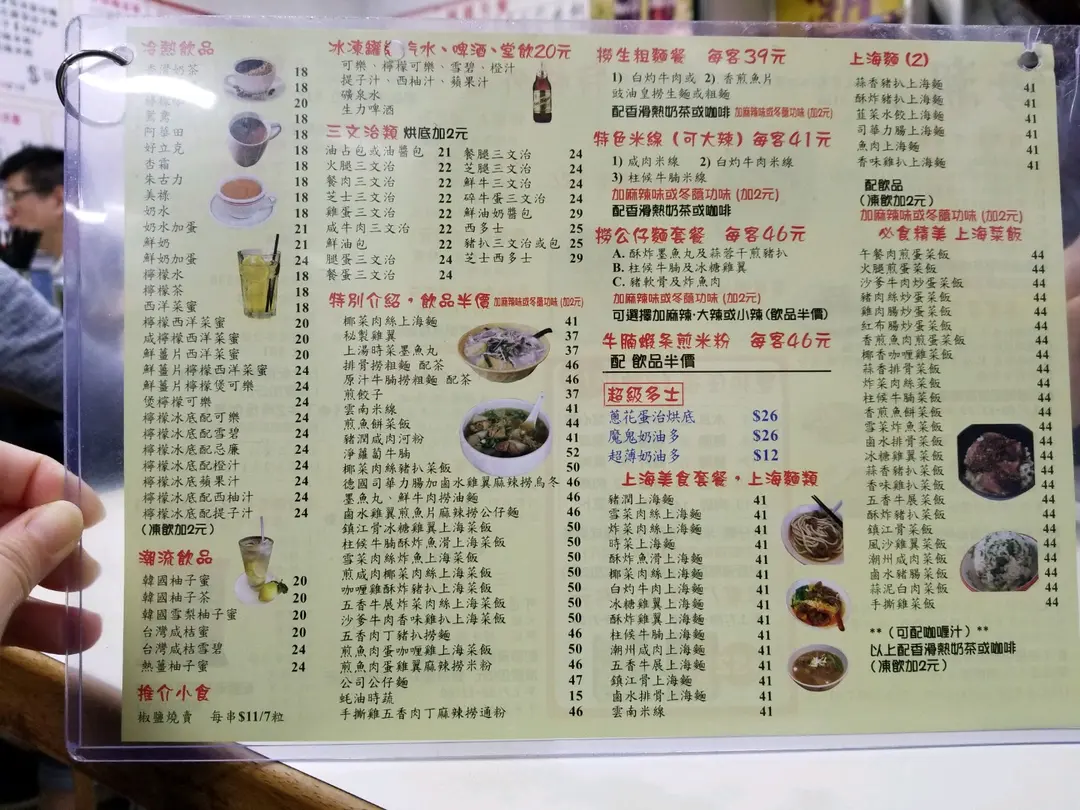 冷熱飲品
香滑奶茶 18
18
檸檬 18
鴛鴦 18
阿華田 18
好立克 18
杏霜 18
朱古力 18
美祿 18
奶水 18
奶水加蛋 21
鮮奶 21
鮮奶加蛋 24
檸檬水 18
檸檬茶 18
西洋菜蜜 18
檸檬西洋菜蜜 20
咸檸檬西洋菜蜜 24
鮮薑片西洋菜蜜 24
鮮薑片檸檬西洋菜蜜 24
鮮薑片檸檬煲可樂 24
煲檸檬可樂 24
檸檬冰底配可樂 24
檸檬冰底配雪碧 24
檸檬冰底配忌廉 24
檸檬冰底配橙汁 24
檸檬冰底蘋果汁 24
檸檬冰底配西柚汁 24
檸檬冰底配提子汁 24
(凍飲加2元)
潮流飲品
韓國柚子蜜 20
韓國柚子茶 20
韓國雪梨柚子蜜 20
台灣咸桔蜜 20
台灣咸桔雪碧 24
熱薑柚子蜜 24
推介小食
椒鹽燒賣 每串$11/7粒
冰凍罐裝汽水、啤酒、堂飲20元
可樂、檸檬可樂、雪碧、橙汁
提子汁、西柚汁、蘋果汁
礦泉水
生力啤酒
三文治類 烘底加2元
油占包或油醬包 21 餐腿三文治 24
火腿三文治 22 芝腿三文治 24
餐肉三文治 22 鮮牛三文治 24
芝士三文治 22 碎牛蛋三文治 24
雞蛋三文治 22 鮮油奶醬包 29
咸牛肉三文治 22 西多士 25
鮮油包 22 豬扒三文治或包 25
腿蛋三文治 24 芝士西多士 29
餐蛋三文治 24
特別介紹，飲品半價 加麻辣味或冬蔭功味 (加2元)
椰菜肉絲上海麵 41
秘製雞翼 37
上湯時菜墨魚丸 37
排骨撈粗麵 配茶 46
原汁牛腩撈粗麵 配茶 46
煎餃子 37
雲南米線 41
煎魚餅菜飯 44
豬潤咸肉河粉 41
淨蘿蔔牛腩 52
椰菜肉絲豬扒菜飯 50
德國司華力腸加鹵水雞翼麻辣撈烏冬 46
墨魚丸、鮮牛肉撈油麵 46
鹵水雞翼煎魚片麻辣撈公仔麵 46
鎮江骨冰糖雞翼上海菜飯 50
柱侯牛腩酥炸魚滑上海菜飯 50
雪菜肉絲炸魚上海菜飯 50
煎咸肉椰菜肉絲上海菜飯 50
咖喱雞酥炸豬扒上海菜飯 50
五香牛展炸菜肉絲上海菜飯 50
沙爹牛肉香味雞扒上海菜飯 50
五香肉丁豬扒撈麵 46
煎魚肉蛋咖喱雞上海菜飯 50
煎魚肉蛋雞翼麻辣撈米粉 46
公司公仔麵 47
蚝油時蔬 15
手撕雞五香肉丁麻辣撈通粉 46
撈生粗麵餐 每客39元
1) 白灼牛肉或 2) 香煎魚片
豉油皇撈生麵或粗麵
配香滑熱奶茶或咖啡 加麻辣味或冬蔭功味 (加2元)
特色米線（可大辣）每客41元
1) 咸肉米線 2) 白灼牛肉米線
3) 柱侯牛腩米線
加麻辣味或冬蔭功味 (加2元)
配香滑熱奶茶或咖啡
撈公仔麵套餐 每客46元
A. 酥炸墨魚丸及蒜蓉干煎豬扒
B. 柱侯牛腩及冰糖雞翼
C. 豬軟骨及炸魚肉
加麻辣味或冬蔭功味 (加2元)
可選擇加麻辣·大辣或小辣(飲品半價)
牛腩蝦条煎米粉 每客46元
配 飲品半價
超級多士
蔥花蛋治烘底 $26
魔鬼奶油多 $26
超薄奶油多 $12
上海美食套餐，上海麵類
豬潤上海麵 41
雪菜肉絲上海麵 41
炸菜肉絲上海麵 41
時菜上海麵 41
酥炸魚滑上海麵 41
椰菜肉絲上海麵 41
白灼牛肉上海麵 41
冰糖雞翼上海麵 41
酥炸雞翼上海麵 41
柱侯牛腩上海麵 41
潮州咸肉上海麵 41
五香牛展上海麵 41
鎮江骨上海麵 41
鹵水排骨上海麵 41
雲南米線 41
上海麵 (2)
蒜香豬扒上海麵 41
酥炸豬扒上海麵 41
韮菜水餃上海麵 41
司華力腸上海麵 41
魚肉上海麵 41
香味雞扒上海麵 41
配飲品
(凍飲加2元)
加麻辣味或冬蔭功味 (加2元)
必食精美 上海菜飯
午餐肉煎蛋菜飯 44
火腿煎蛋菜飯 44
沙爹牛肉炒蛋菜飯 44
豬肉絲炒蛋菜飯 44
雞肉腸炒蛋菜飯 44
紅布腸炒蛋菜飯 44
香煎魚肉煎蛋菜飯 44
椰香咖喱雞菜飯 44
蒜香排骨菜飯 44
炸菜肉絲菜飯 44
柱侯牛腩菜飯 44
香煎魚餅菜飯 44
雪菜炸魚菜飯 44
鹵水排骨菜飯 44
冰糖雞翼菜飯 44
蒜香豬扒菜飯 44
香味雞扒菜飯 44
五香牛展菜飯 44
酥炸豬扒菜飯 44
鎮江骨菜飯 44
風沙雞翼菜飯 44
潮州咸肉菜飯 44
鹵水豬腸菜飯 44
蒜泥白肉菜飯 44
手撕雞菜飯 44
**（可配咖喱汁）**
以上配香滑熱奶茶或咖啡
(凍飲加2元)